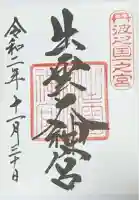 丹波之国一之宮
出雲大神宮
令和二年十一月三十日